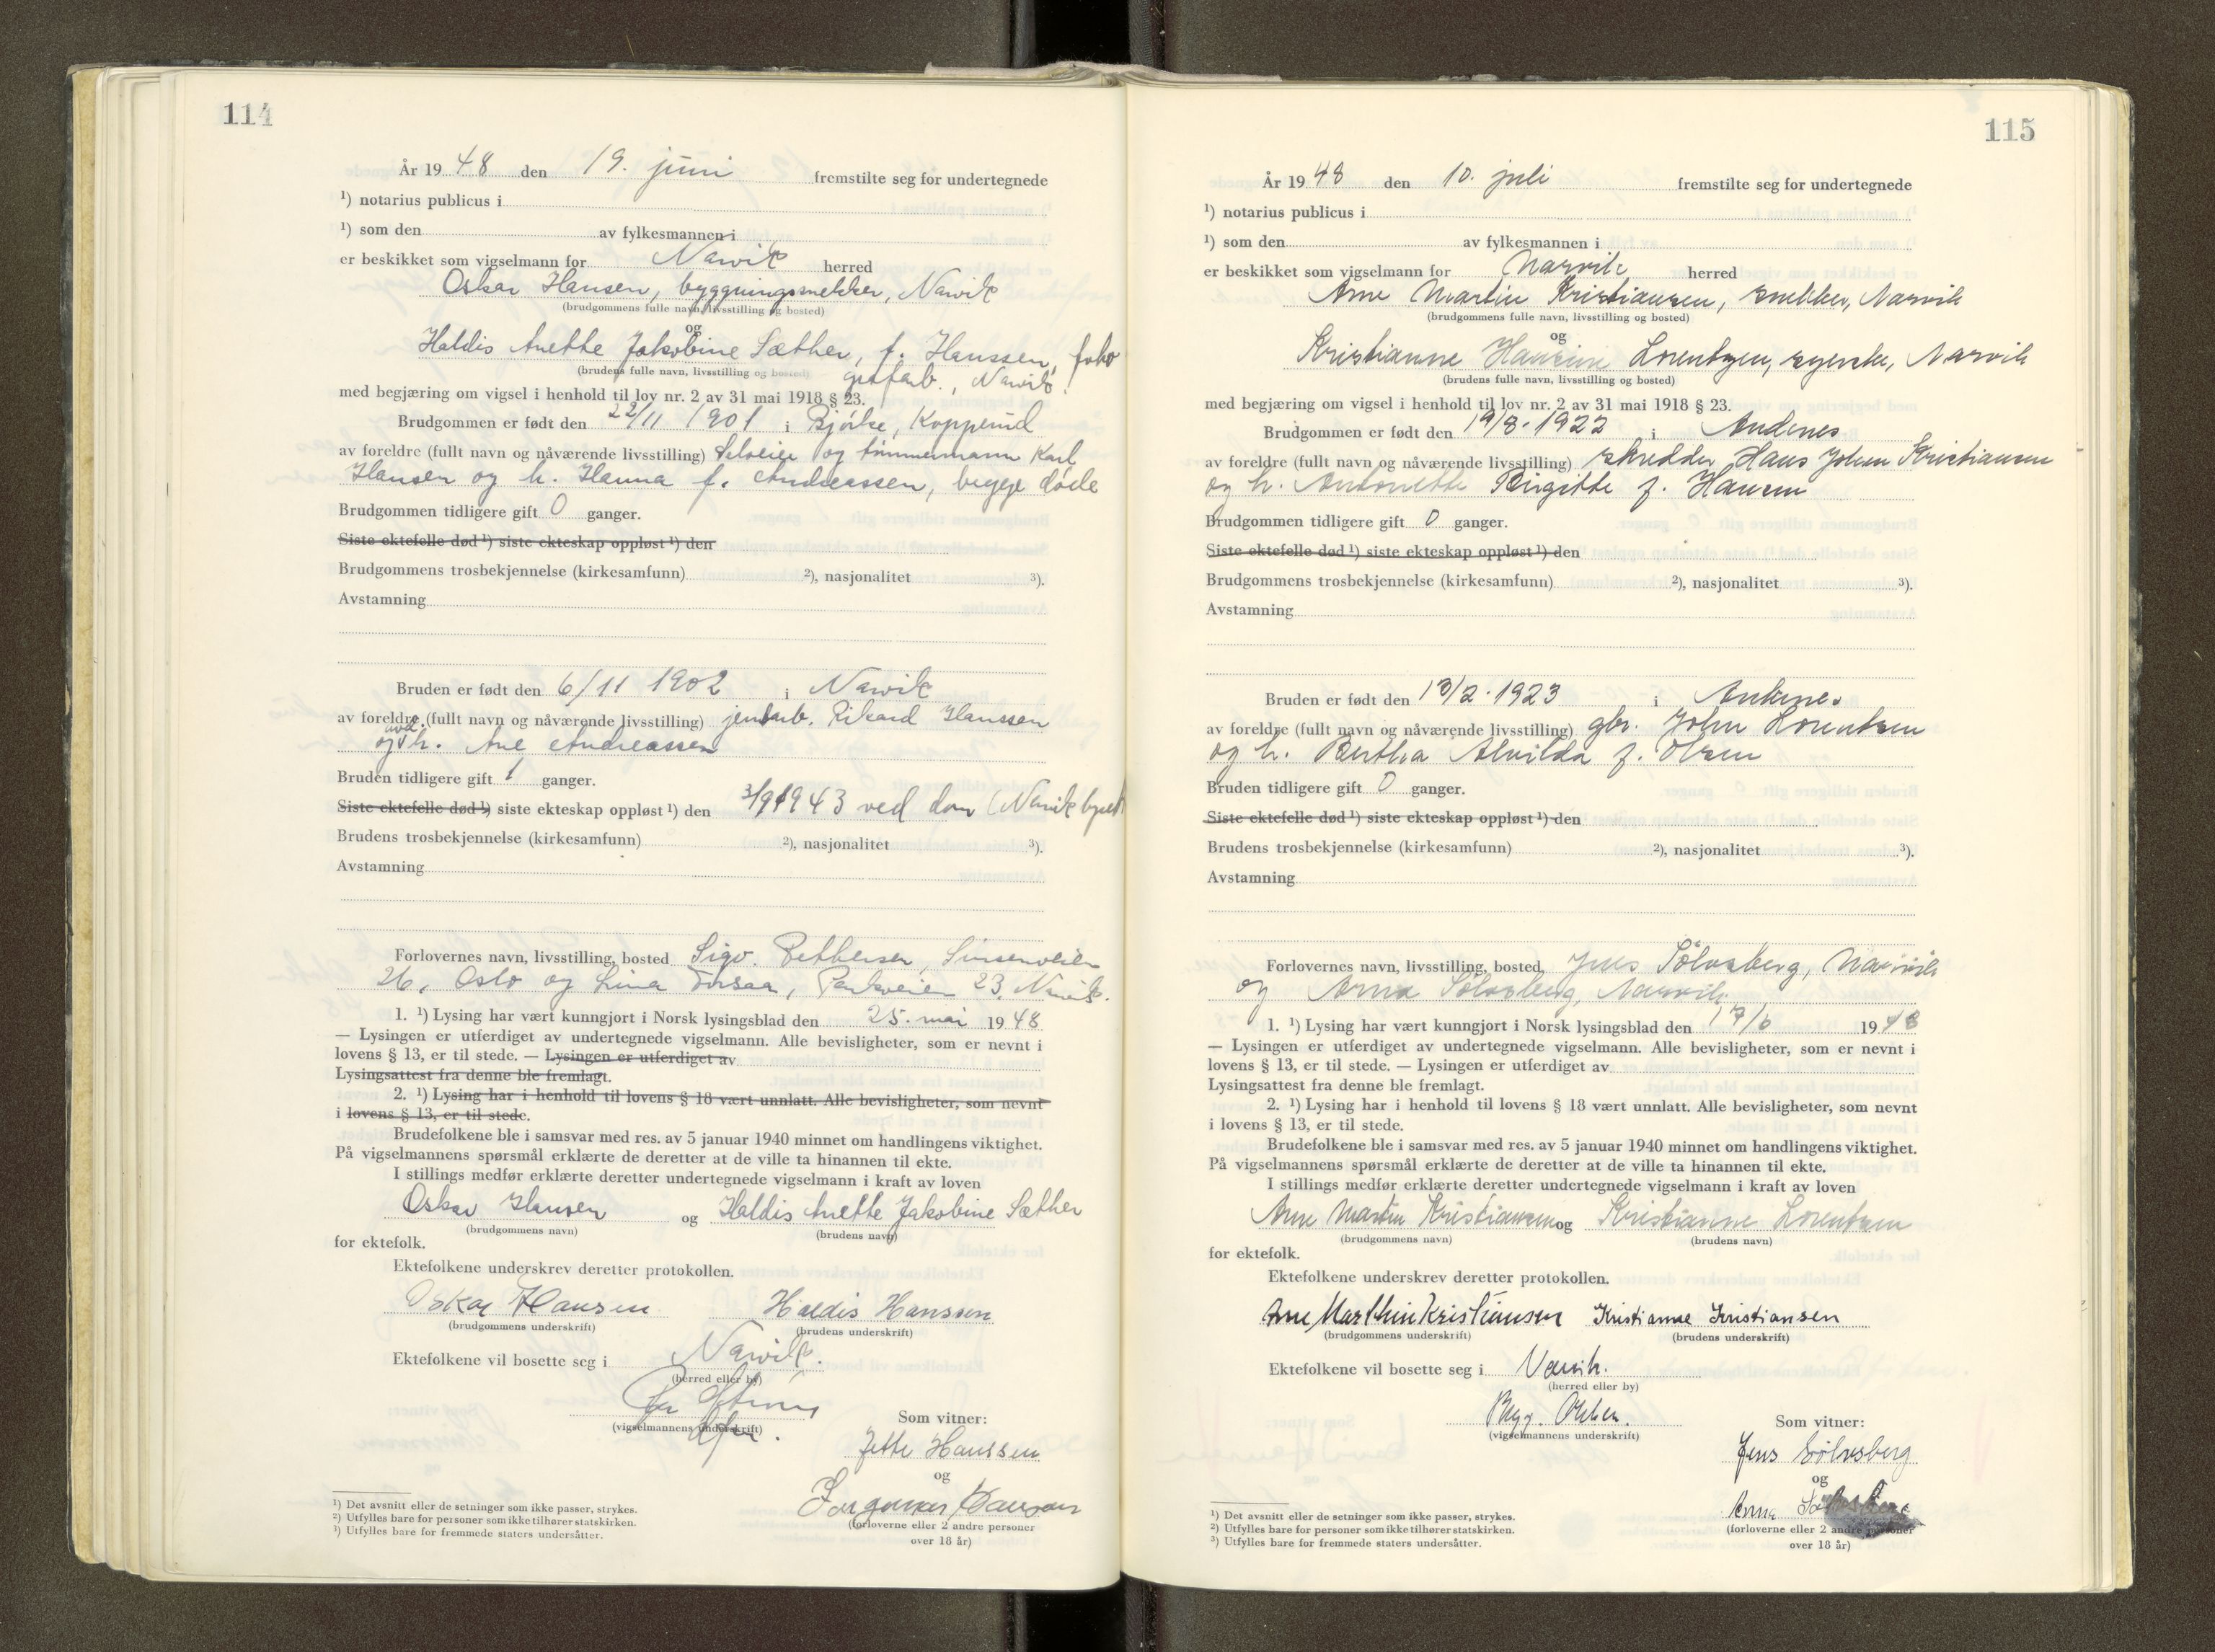 114
År 19 48 den 19. juni fremstilte seg for undertegnede
¹) notarius publicus i
¹) som den av fylkesmannen i
er beskikket som vigselmann for Narvik herred
Oskar Hansen, byggningssnekker, Narvik
(brudgommens fulle navn, livsstilling og bosted)
og
Haldis Anette Jakobine Sæther, f. Hanssen, foto
(brudens fulle navn, livsstilling og bosted) grafarb., Narvik.
med begjæring om vigsel i henhold til lov nr. 2 av 31 mai 1918 § 23.
Brudgommen er født den 22/11 1901 i Bjørke,
av foreldre (fullt navn og nåværende livsstilling) Selveier og tømmermann Karl
Hansen og h. Hanna f. Andreassen, begge døde
Brudgommen tidligere gift 0 ganger.
Siste ektefelle død ¹) siste ekteskap oppløst ¹) den
Brudgommens trosbekjennelse (kirkesamfunn) ²), nasjonalitet ³).
Avstamning
Bruden er født den 6/11 1902 i Narvik
av foreldre (fullt navn og nåværende livsstilling) jernb.arb. Rikard Hanssen
og h. Ane Andreassen
Bruden tidligere gift 1 ganger.
Siste ektefelle død ¹) siste ekteskap oppløst ¹) den 3/9 1943 ved dom (Narvik byrett
Brudens trosbekjennelse (kirkesamfunn) ²), nasjonalitet ³).
Avstamning
Forlovernes navn, livsstilling, bosted Sigv. Pettersen, Sinsenveien
26, Oslo og Lina Parkveien 23, Narvik.
1. ¹) Lysing har vært kunngjort i Norsk lysingsblad den 25. mai 19 48
— Lysingen er utferdiget av undertegnede vigselmann. Alle bevisligheter, som er nevnt i
lovens § 13, er til stede. — Lysingen er utferdiget av
Lysingsattest fra denne ble fremlagt.
2. ¹) Lysing har i henhold til lovens § 18 vært unnlatt. Alle bevisligheter, som nevnt
i lovens § 13, er til stede.
Brudefolkene ble i samsvar med res. av 5 januar 1940 minnet om handlingens viktighet.
På vigselmannens spørsmål erklærte de deretter at de ville ta hinannen til ekte.
I stillings medfør erklærte deretter undertegnede vigselmann i kraft av loven
Oskar Hansen og Haldis Anette Jakobine Sæther
(brudgommens navn) (brudens navn)
for ektefolk.
Ektefolkene underskrev deretter protokollen.
Oskar Hansen Haldis Hanssen
(brudgommens underskrift) (brudens underskrift)
Ektefolkene vil bosette seg i Narvik.
(herred eller by)
(vigselmannens underskrift)
Som vitner:
Jette Hanssen
og
Hansen
(forloverne eller 2 andre personer
over 18 år)
¹) Det avsnitt eller de setninger som ikke passer, strykes.
²) Utfylles bare for personer som ikke tilhører statskirken.
³) Utfylles bare for fremmede staters undersåtter.
115
År 19 48 den 10. juli fremstilte seg for undertegnede
¹) notarius publicus i
¹) som den av fylkesmannen i
er beskikket som vigselmann for Narvik herred
Arne Martin Kristiansen, snekker, Narvik
(brudgommens fulle navn, livsstilling og bosted)
og
Kristianne Hansine Lorentzen, syerske, Narvik
(brudens fulle navn, livsstilling og bosted)
med begjæring om vigsel i henhold til lov nr. 2 av 31 mai 1918 § 23.
Brudgommen er født den 19/8-1922 i Andenes
av foreldre (fullt navn og nåværende livsstilling) skredder Hans Johan Kristiansen
og h. Antonette Birgitte f. Hansen
Brudgommen tidligere gift 0 ganger.
Siste ektefelle død ¹) siste ekteskap oppløst ¹) den
Brudgommens trosbekjennelse (kirkesamfunn) ²), nasjonalitet ³).
Avstamning
Bruden er født den 13/2-1923 i Ankenes
av foreldre (fullt navn og nåværende livsstilling) gbr. John Lorentzen
og h. Bertha Alvilda f. Olsen
Bruden tidligere gift 0 ganger.
Siste ektefelle død ¹) siste ekteskap oppløst ¹) den
Brudens trosbekjennelse (kirkesamfunn) ²), nasjonalitet ³).
Avstamning
Forlovernes navn, livsstilling, bosted Jens Sølvsberg, Narvik
og Arna Sølvsberg, Narvik.
1. ¹) Lysing har vært kunngjort i Norsk lysingsblad den 17/6 19 48
— Lysingen er utferdiget av undertegnede vigselmann. Alle bevisligheter, som er nevnt i
lovens § 13, er til stede. — Lysingen er utferdiget av
Lysingsattest fra denne ble fremlagt.
2. ¹) Lysing har i henhold til lovens § 18 vært unnlatt. Alle bevisligheter, som nevnt
i lovens § 13, er til stede.
Brudefolkene ble i samsvar med res. av 5 januar 1940 minnet om handlingens viktighet.
På vigselmannens spørsmål erklærte de deretter at de ville ta hinannen til ekte.
I stillings medfør erklærte deretter undertegnede vigselmann i kraft av loven
Arne Martin Kristiansen og Kristianne Lorentzen
(brudgommens navn) (brudens navn)
for ektefolk.
Ektefolkene underskrev deretter protokollen.
Arne Marthin Kristiansen Kristianne Kristiansen
(brudgommens underskrift) (brudens underskrift)
Ektefolkene vil bosette seg i Narvik.
(herred eller by)
(vigselmannens underskrift)
Som vitner:
Jens Sølvsberg
og
Arna
(forloverne eller 2 andre personer
over 18 år)
¹) Det avsnitt eller de setninger som ikke passer, strykes.
²) Utfylles bare for personer som ikke tilhører statskirken.
³) Utfylles bare for fremmede staters undersåtter.